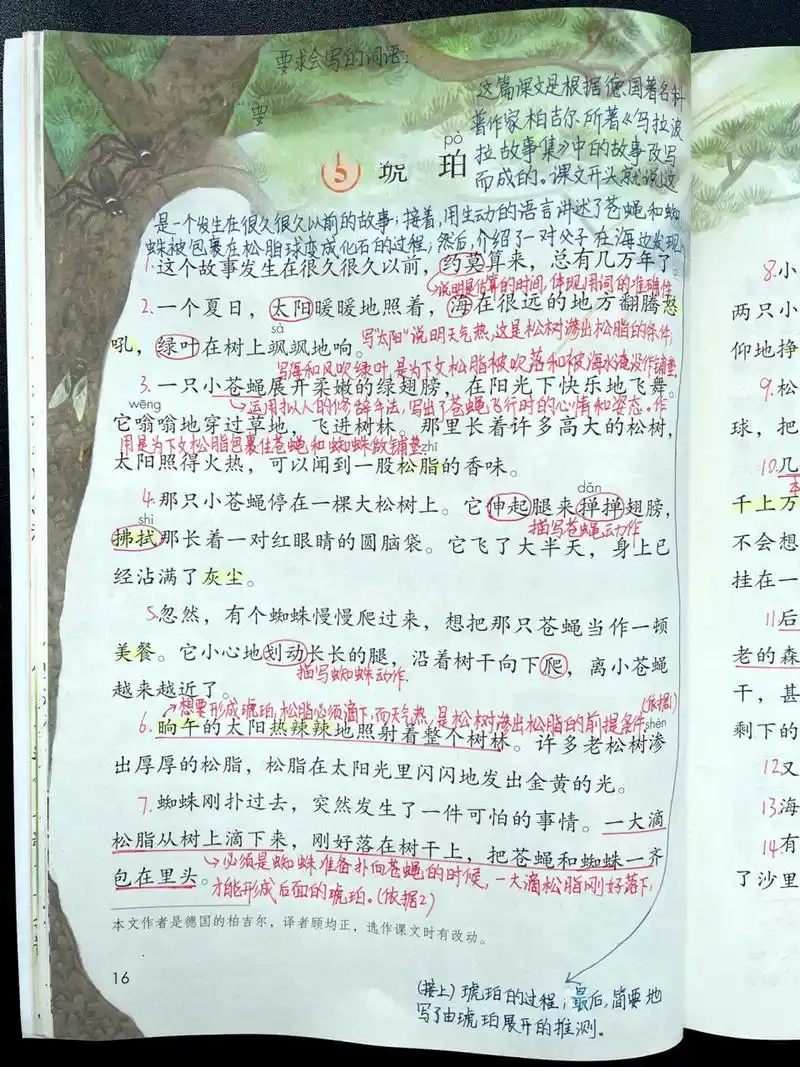 要求会写的词语:
要
这篇课文是根据德国著名科
普作家柏吉尔所著《乌拉波
拉故事集》中的故事改写
而成的。课文开头就说这
pò
5 琥 珀
是一个发生在很久很久以前的故事;接着,用生动的语言讲述了苍蝇和蜘
蛛被包裹在松脂球变成化石的过程;然后,介绍了一对父子在海边发现
1.这个故事发生在很久很久以前,约莫算来,总有几万年了。
→说明是估算的时间,体现用词的准确性
2.一个夏日,太阳暖暖地照着,海在很远的地方翻腾怒
sà
写"太阳"说明天气热,这是松树渗出松脂的条件;
吼,绿叶在树上飒飒地响。
写海和风吹绿叶,是为下文松脂被吹落和被海水淹没作铺垫
3.一只小苍蝇展开柔嫩的绿翅膀,在阳光下快乐地飞舞。
wēng
→运用拟人的修辞手法,写出了苍蝇飞行时的心情和姿态。作
它嗡嗡地穿过草地,飞进树林。那里长着许多高大的松树,
用是为下文松脂包裹住苍蝇和蜘蛛做铺垫
zhī
太阳照得火热,可以闻到一股松脂的香味。
dǎn
4.那只小苍蝇停在一棵大松树上。它伸起腿来掸掸翅膀,
shì
描写苍蝇动作
拂拭那长着一对红眼睛的圆脑袋。它飞了大半天,身上已
经沾满了灰尘。
5.忽然,有个蜘蛛慢慢爬过来,想把那只苍蝇当作一顿
美餐。它小心地划动长长的腿,沿着树干向下爬,离小苍蝇
描写蜘蛛动作.
越来越近了。
→想要形成琥珀,松脂必须滴下,而天气热,是松树渗出松脂的前提条件(依据1)
shèn
6.晌午的太阳热辣辣地照射着整个树林。许多老松树渗
出厚厚的松脂,松脂在太阳光里闪闪地发出金黄的光。
7.蜘蛛刚扑过去,突然发生了一件可怕的事情。一大滴
松脂从树上滴下来,刚好落在树干上,把苍蝇和蜘蛛一齐
→必须是蜘蛛准备扑向苍蝇的时候,一大滴松脂刚好落下,
包在里头。
才能形成后面的琥珀。(依据2)
本文作者是德国的柏吉尔,译者顾均正,选作课文时有改动。
16
(接上)琥珀的过程;最后,简要地
写了由琥珀展开的推测。
8.小
两只小
仰地挣
9.松
球,把
10.几
千上万
不会想
挂在一
11后
老的森
干,甚
剩下的
12又
13海
14有
了沙里